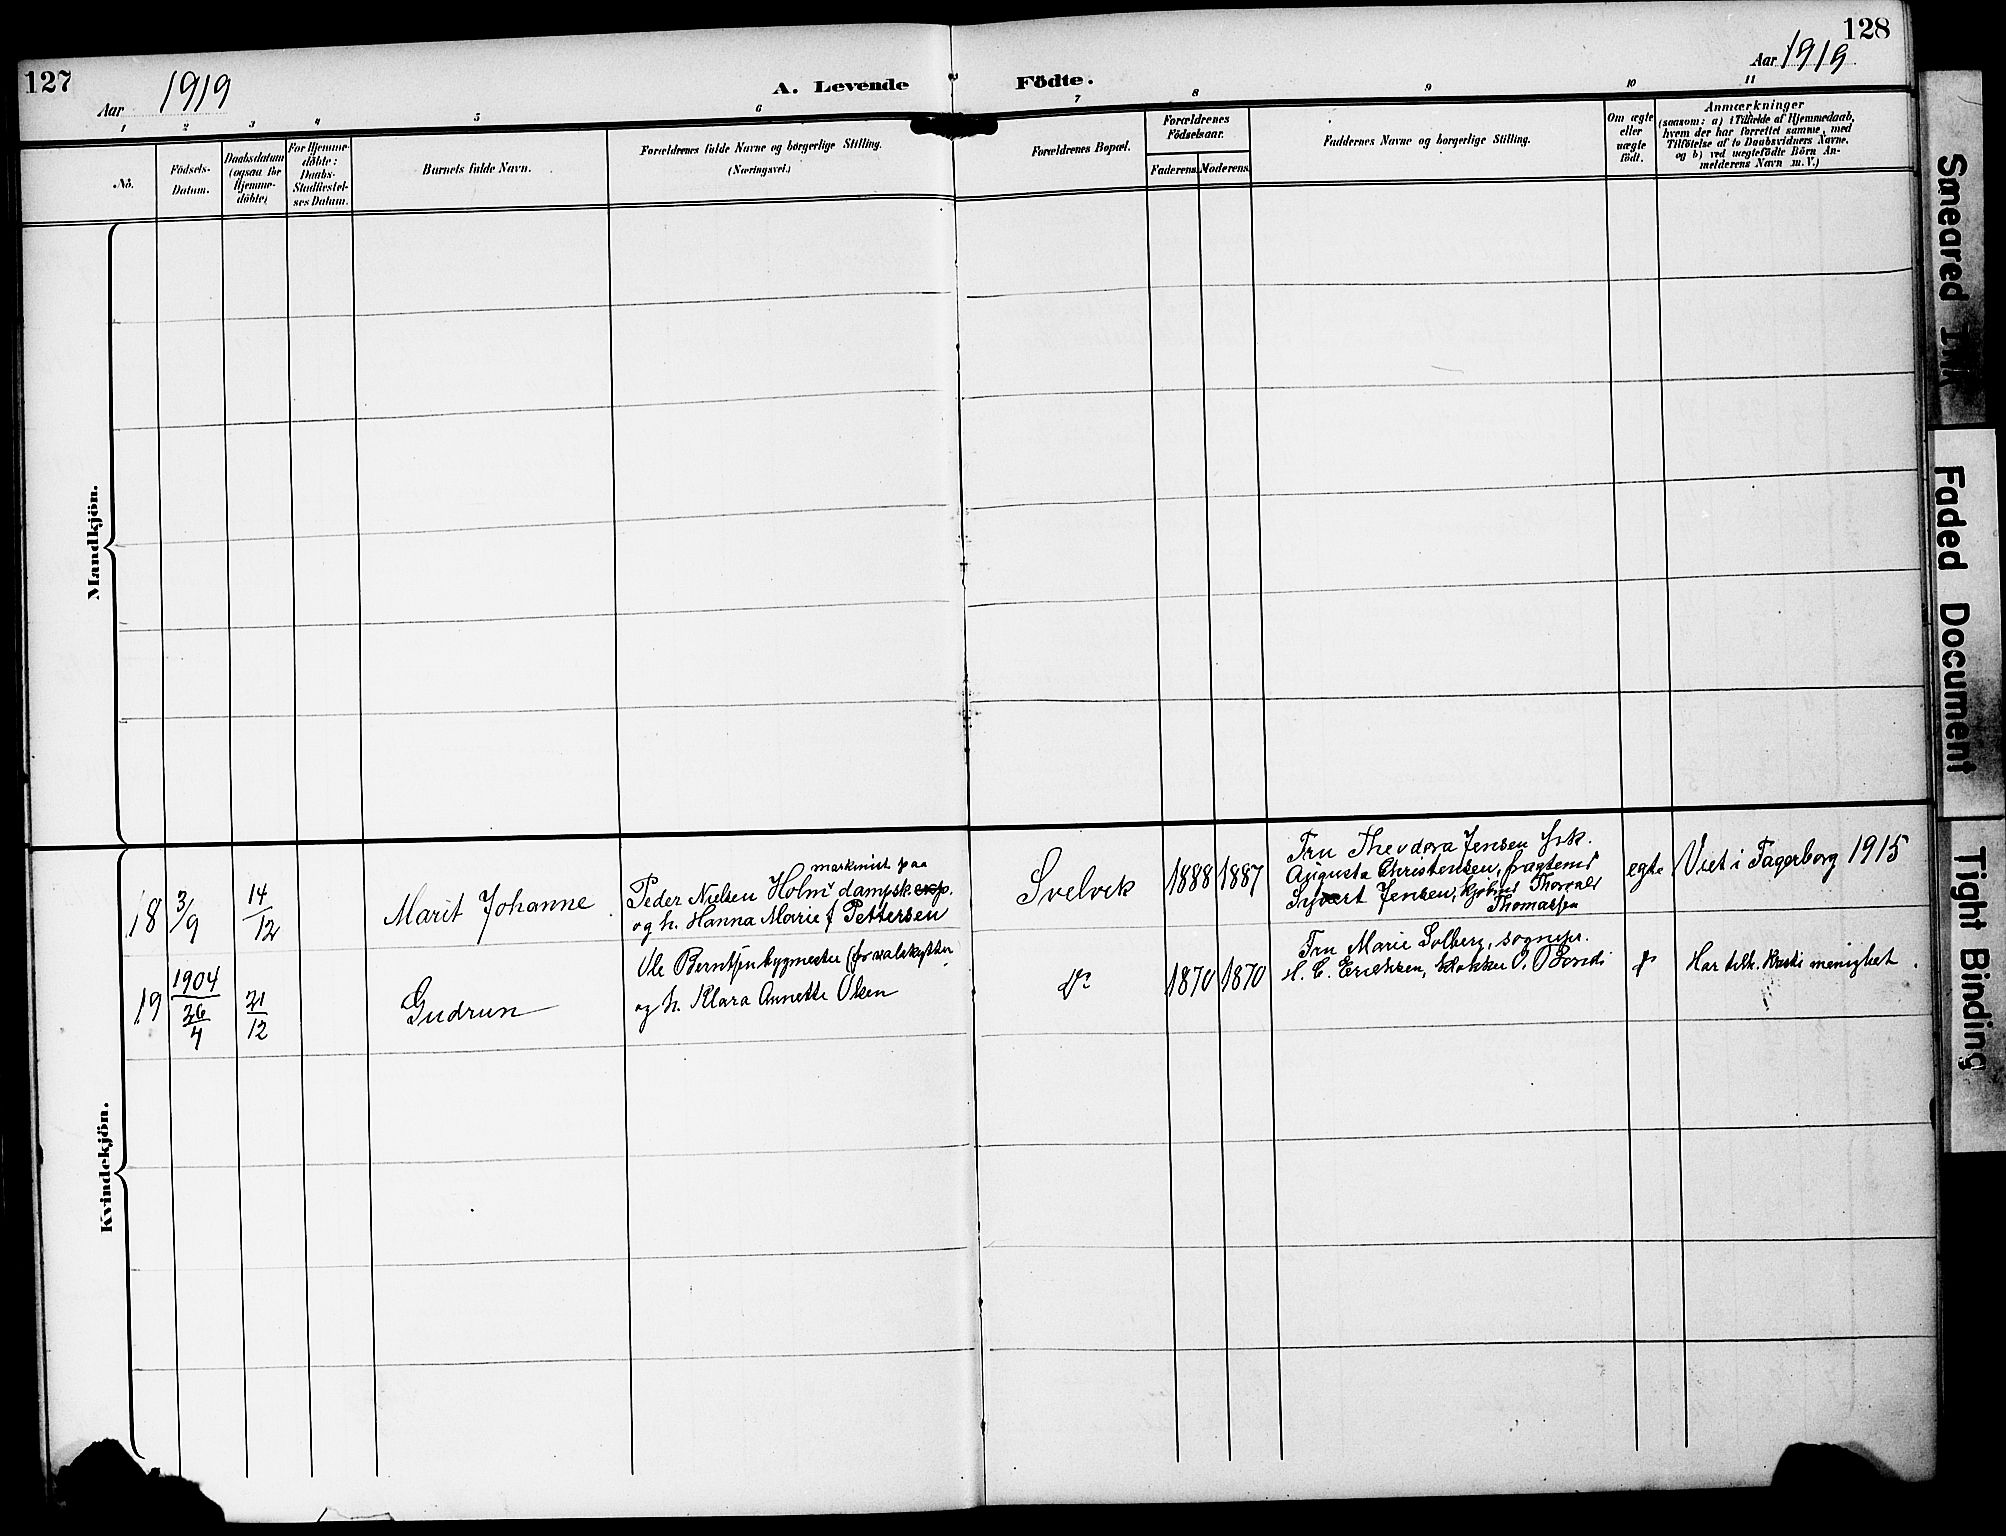 127
Aar 1919
A. Levende Födte.
Aar 1919
128
1 2 3 4 5 6 7 8 9 10 11
No.
Födsels-
Datum.
Daabsdatum
(ogsaa for
Hjemme-
döbte)
For Hjemme-
döbte:
Daabs-
Stadfæstel-
ses Datum.
Barnets fulde Navn.
Forældrenes fulde Navne og borgerlige Stilling.
(Næringsvei.)
Forældrenes Bopæl.
Forældrenes
Födselsaar.
Faderens. Moderens.
Faddernes Navne og borgerlige Stilling.
Om ægte
eller
uægte
födt.
Anmærkninger
(saasom: a) i Tilfælde af Hjemmedaab,
hvem der har forrettet samme, med
Tilföielse af to Daabsvidners Navne,
og b) ved uægtefödte Börn An-
melderens Navn m. V.)
Mandkjön.
Kvindekjön.
18
3/9
14/12
Marit Johanne
maskinist paa
Peder Nielsen Holm dampsk
og h. Hanna Marie f Pettersen
Svelvik
1888 1887
Fru Theodora Jensen frk.
Augusta Christensen, fragtem
Jensen, kjøbm Thorvald
Thomassen
egte
Viet i Fagerborg 1915
19
1904
26/4
21/12
Gudrun
Ole Berntsen bygmester
og h. Klara Annette Olsen
do
1870 1870
Fru Marie Solberg, sognepr.
H. C. Erichsen, klokker O. Bondi
do
Har tilh. menighet
Smeared Ink
Faded Document
Tight Binding